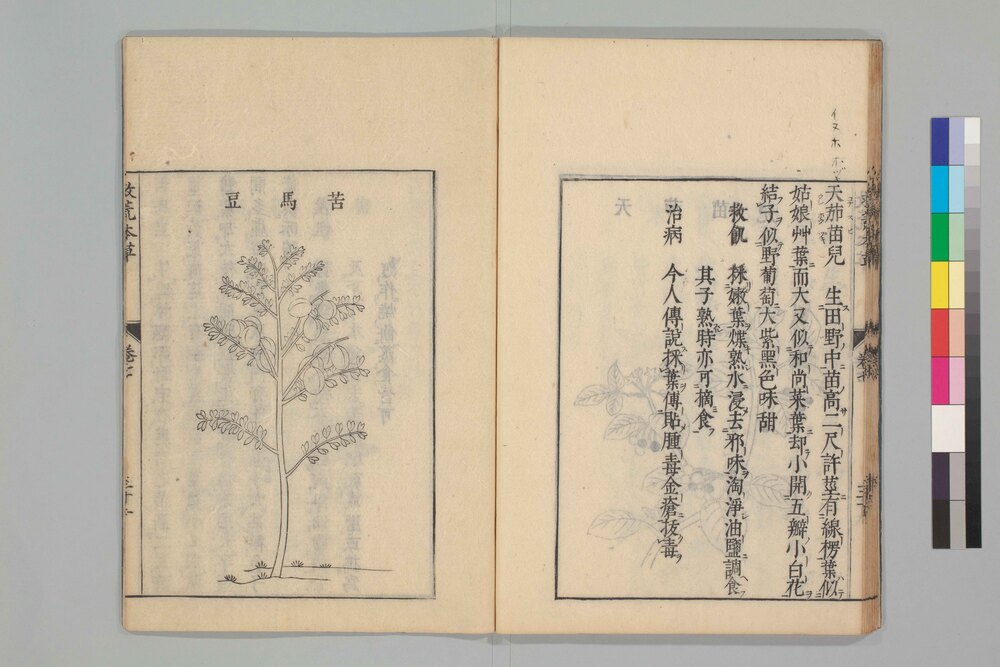 イヌホホヅキ
天茄苗兒　生田野中苗高二尺許莖有線楞葉似
姑娘艸葉而大又似和尚菜葉却小開五瓣小白花
結子似野葡萄大紫黑色味甜
救飢　採嫩葉煠熟水浸去邪味淘淨油鹽調食
其子熟時亦可摘食
治病　今人傳說採葉傅貼腫毒金瘡拔毒
苦馬豆
救荒本草